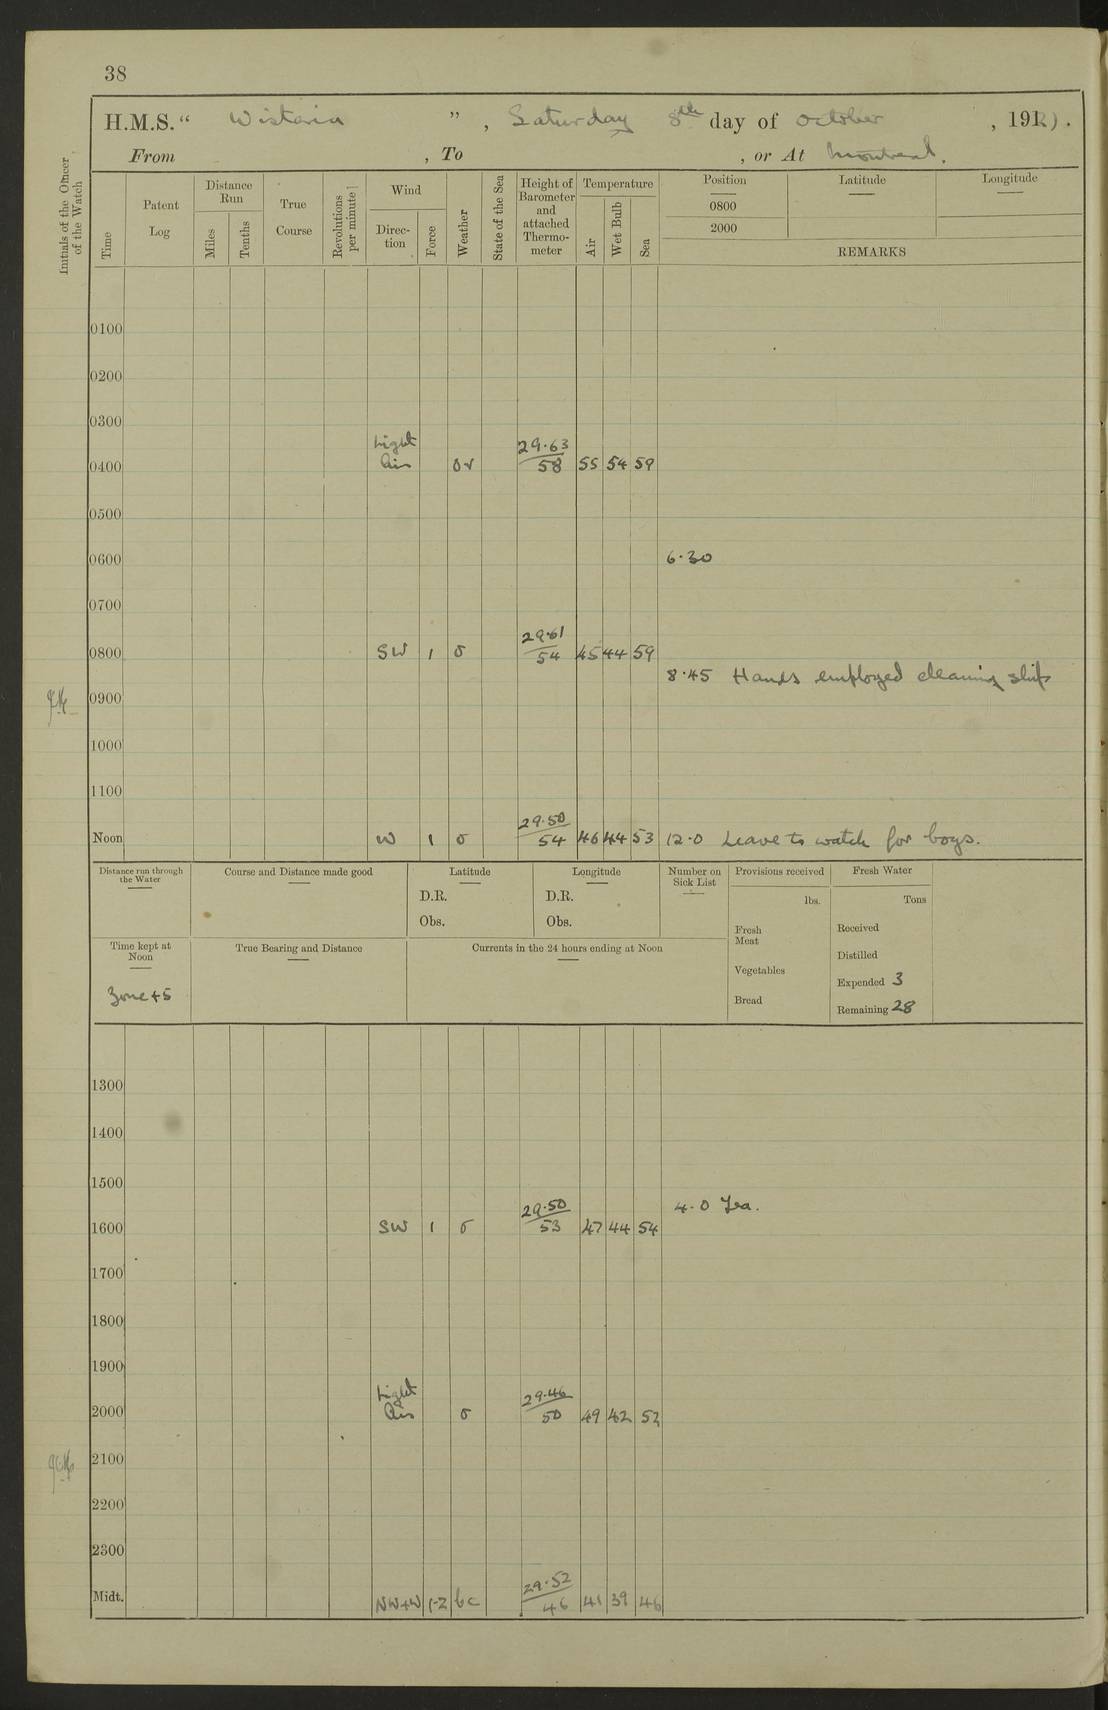 38
H.M.S. “ Wistaria ” , Saturday 8th day of October , 192
From , To , or At Montreal.
Initials of the Officer of the Watch
Time
Patent Log
Distance Run
Miles
Tenths
True Course
Revolutions per minute
Wind
Direc-tion
Force
Weather
State of the Sea
Height of Barometer and attached Thermo-meter
Temperature
Air
Wet Bulb
Sea
Position
Latitude
Longitude
0800
2000
REMARKS
0100
0200
0300
0400 Light Airs 29.63 58 55 54 59
0500
0600 6.30
0700
0800 SW 1 o 29.61 54 45 44 59
8.45 Hands employed cleaning ship
0900
1000
1100
Noon W 1 o 29.50 54 46 44 53 12.0 Leave to watch for boys.
Distance run through the Water
Course and Distance made good
Latitude
D.R.
Obs.
Longitude
D.R.
Obs.
Number on Sick List
Provisions received
lbs.
Fresh Meat
Vegetables
Bread
Fresh Water
Tons
Received
Distilled
Expended 3
Remaining 28
Time kept at Noon
Zone +5
True Bearing and Distance
Currents in the 24 hours ending at Noon
1300
1400
1500
4.0 Tea.
1600 SW 1 o 29.50 53 47 44 54
1700
1800
1900
2000 Light Airs o 29.46 50 49 42 52
2100
2200
2300
Midt. 1-2 bc 29.52 46 41 39 46